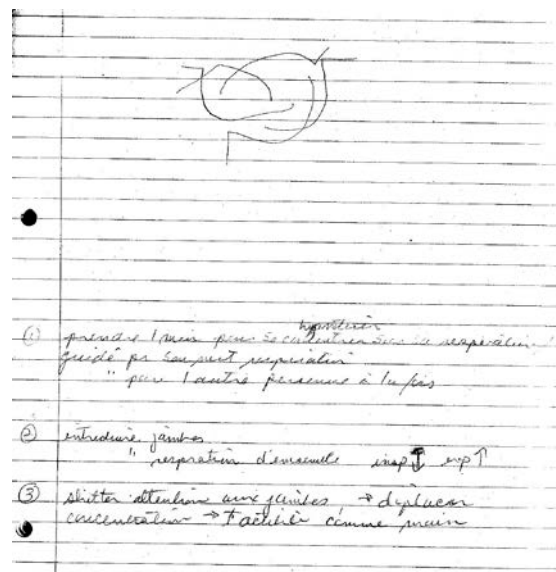 ① prendre 1 main pour se concentrer sur sa respiration
guidé par respiration
" par l'autre personne à
② introduire jambes
" respiration d'ensemble insp exp ↑
③ shifter attention aux jambes → déplacer
concentration → comme main